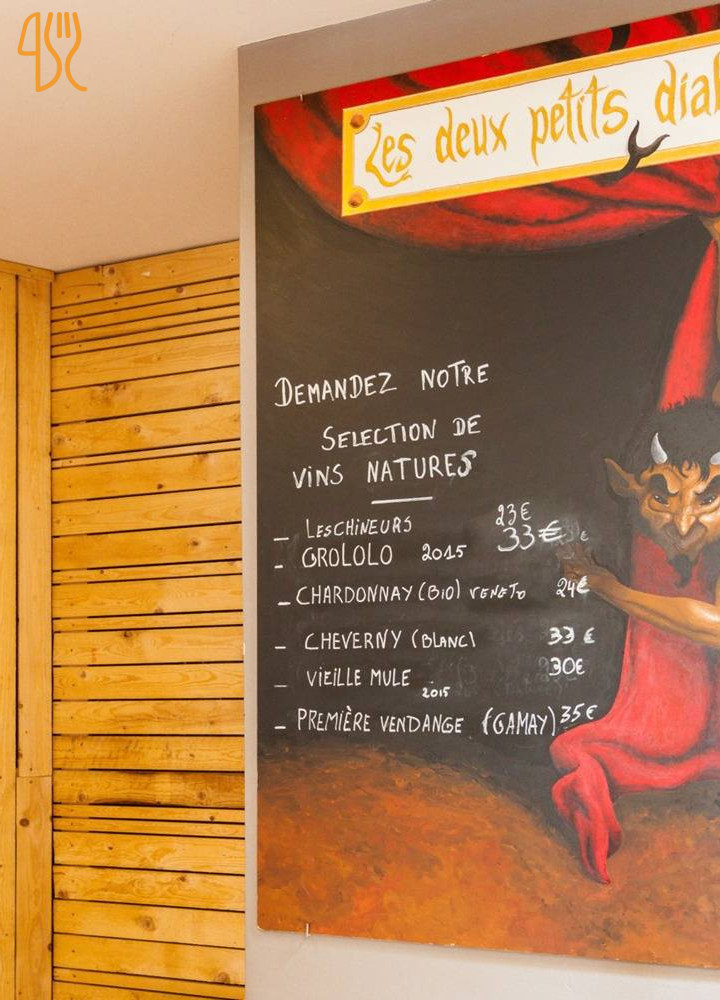 Les deux petits dia
DEMANDEZ NOTRE
SELECTION DE
VINS NATURES
_ LESCHINEURS 23€
- GROLOLO 2015 33€
- CHARDONNAY (BIO) VENETO 24€
- CHEVERNY (BLANC) 33€
_ VIEILLE MULE 2015 30€
- PREMIÈRE VENDANGE (GAMAY) 35€